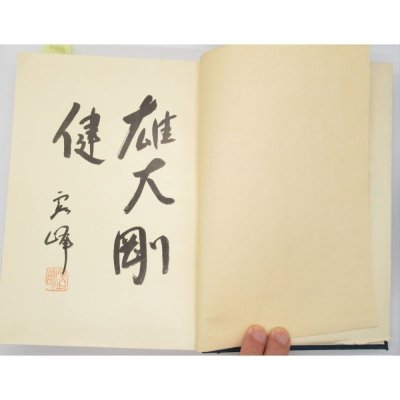 雄大剛
健
峰